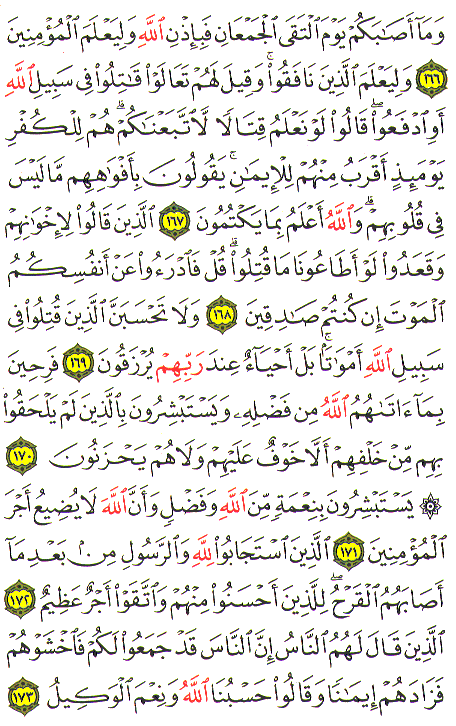 وَمَآ أَصَٰبَكُمۡ يَوۡمَ ٱلۡتَقَى ٱلۡجَمۡعَانِ فَبِإِذۡنِ ٱللَّهِ وَلِيَعۡلَمَ ٱلۡمُؤۡمِنِينَ
١٦٦ وَلِيَعۡلَمَ ٱلَّذِينَ نَافَقُواْۚ وَقِيلَ لَهُمۡ تَعَالَوۡاْ قَٰتِلُواْ فِي سَبِيلِ ٱللَّهِ
أَوِ ٱدۡفَعُواْۖ قَالُواْ لَوۡ نَعۡلَمُ قِتَالٗا لَّٱتَّبَعۡنَٰكُمۡۗ هُمۡ لِلۡكُفۡرِ
يَوۡمَئِذٍ أَقۡرَبُ مِنۡهُمۡ لِلۡإِيمَٰنِۚ يَقُولُونَ بِأَفۡوَٰهِهِم مَّا لَيۡسَ
فِي قُلُوبِهِمۡۗ وَٱللَّهُ أَعۡلَمُ بِمَا يَكۡتُمُونَ ١٦٧ ٱلَّذِينَ قَالُواْ لِإِخۡوَٰنِهِمۡ
وَقَعَدُواْ لَوۡ أَطَاعُونَا مَا قُتِلُواْۗ قُلۡ فَٱدۡرَءُواْ عَنۡ أَنفُسِكُمُ
ٱلۡمَوۡتَ إِن كُنتُمۡ صَٰدِقِينَ ١٦٨ وَلَا تَحۡسَبَنَّ ٱلَّذِينَ قُتِلُواْ فِي
سَبِيلِ ٱللَّهِ أَمۡوَٰتَۢاۚ بَلۡ أَحۡيَآءٌ عِندَ رَبِّهِمۡ يُرۡزَقُونَ ١٦٩ فَرِحِينَ
بِمَآ ءَاتَىٰهُمُ ٱللَّهُ مِن فَضۡلِهِۦ وَيَسۡتَبۡشِرُونَ بِٱلَّذِينَ لَمۡ يَلۡحَقُواْ
بِهِم مِّنۡ خَلۡفِهِمۡ أَلَّا خَوۡفٌ عَلَيۡهِمۡ وَلَا هُمۡ يَحۡزَنُونَ ١٧٠
۞ يَسۡتَبۡشِرُونَ بِنِعۡمَةٖ مِّنَ ٱللَّهِ وَفَضۡلٖ وَأَنَّ ٱللَّهَ لَا يُضِيعُ أَجۡرَ
ٱلۡمُؤۡمِنِينَ ١٧١ ٱلَّذِينَ ٱسۡتَجَابُواْ لِلَّهِ وَٱلرَّسُولِ مِنۢ بَعۡدِ مَآ
أَصَابَهُمُ ٱلۡقَرۡحُۚ لِلَّذِينَ أَحۡسَنُواْ مِنۡهُمۡ وَٱتَّقَوۡاْ أَجۡرٌ عَظِيمٌ ١٧٢
ٱلَّذِينَ قَالَ لَهُمُ ٱلنَّاسُ إِنَّ ٱلنَّاسَ قَدۡ جَمَعُواْ لَكُمۡ فَٱخۡشَوۡهُمۡ
فَزَادَهُمۡ إِيمَٰنٗا وَقَالُواْ حَسۡبُنَا ٱللَّهُ وَنِعۡمَ ٱلۡوَكِيلُ ١٧٣